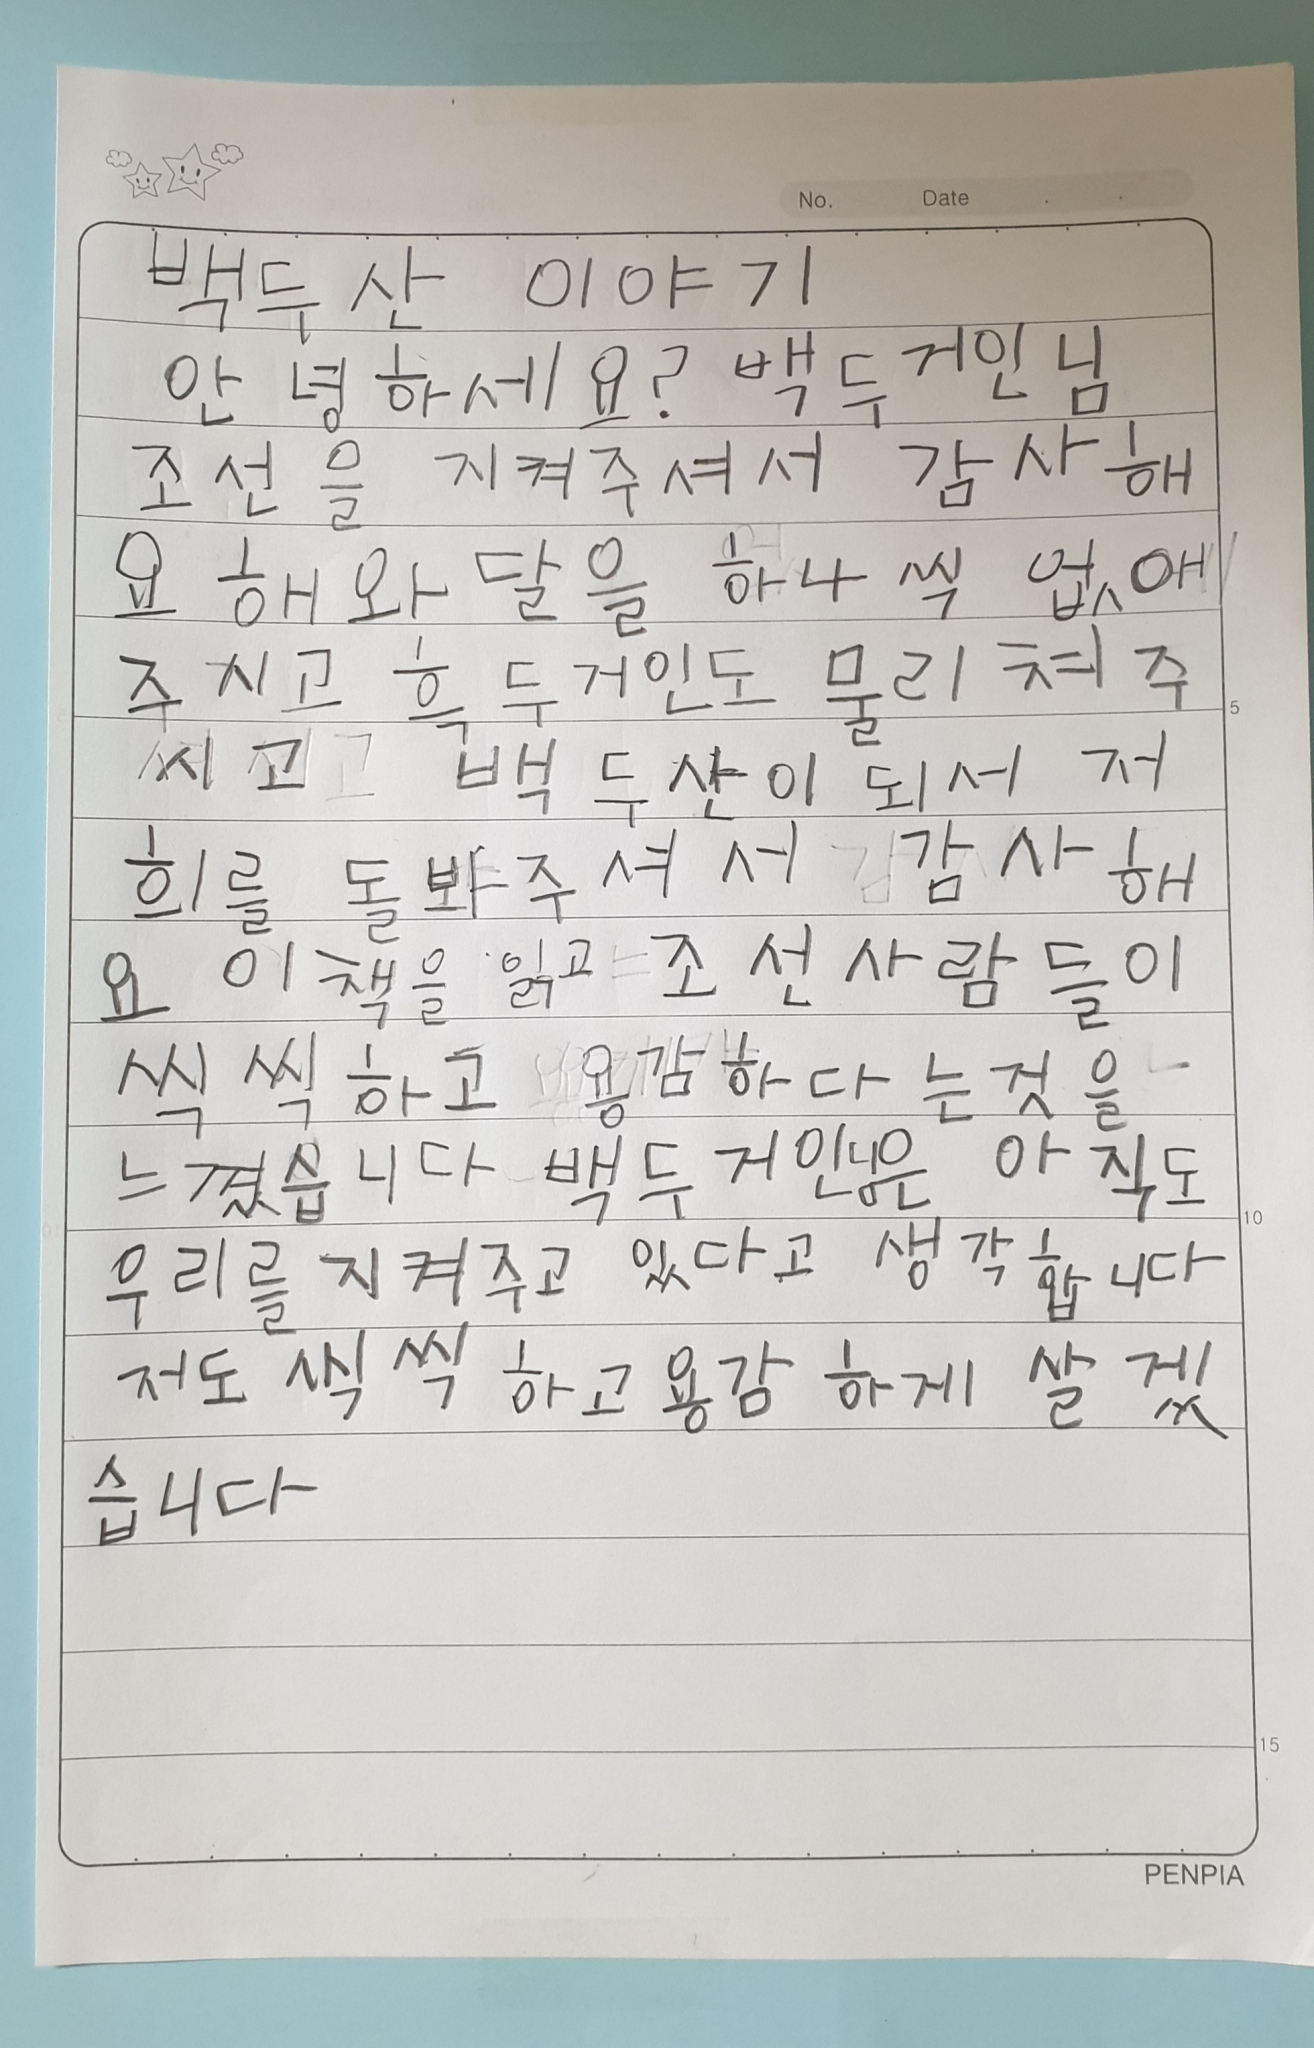 No. Date
백두산 이야기
안녕하세요? 백두거인님
조선을 지켜주셔서 감사해
요 해와달을 하나씩 없애
주시고 흑두거인도 물리쳐주
씨고 백두산이 되서 저
희를 돌봐주셔서 감사해
요 이책을 읽고 조선사람들이
씩씩하고 용감하다는것을
느꼈습니다 백두거인님은 아직도
우리를 지켜주고 있다고 생각합니다
저도 씩씩하고용감하게 살겠
습니다
5
10
15
PENPIA